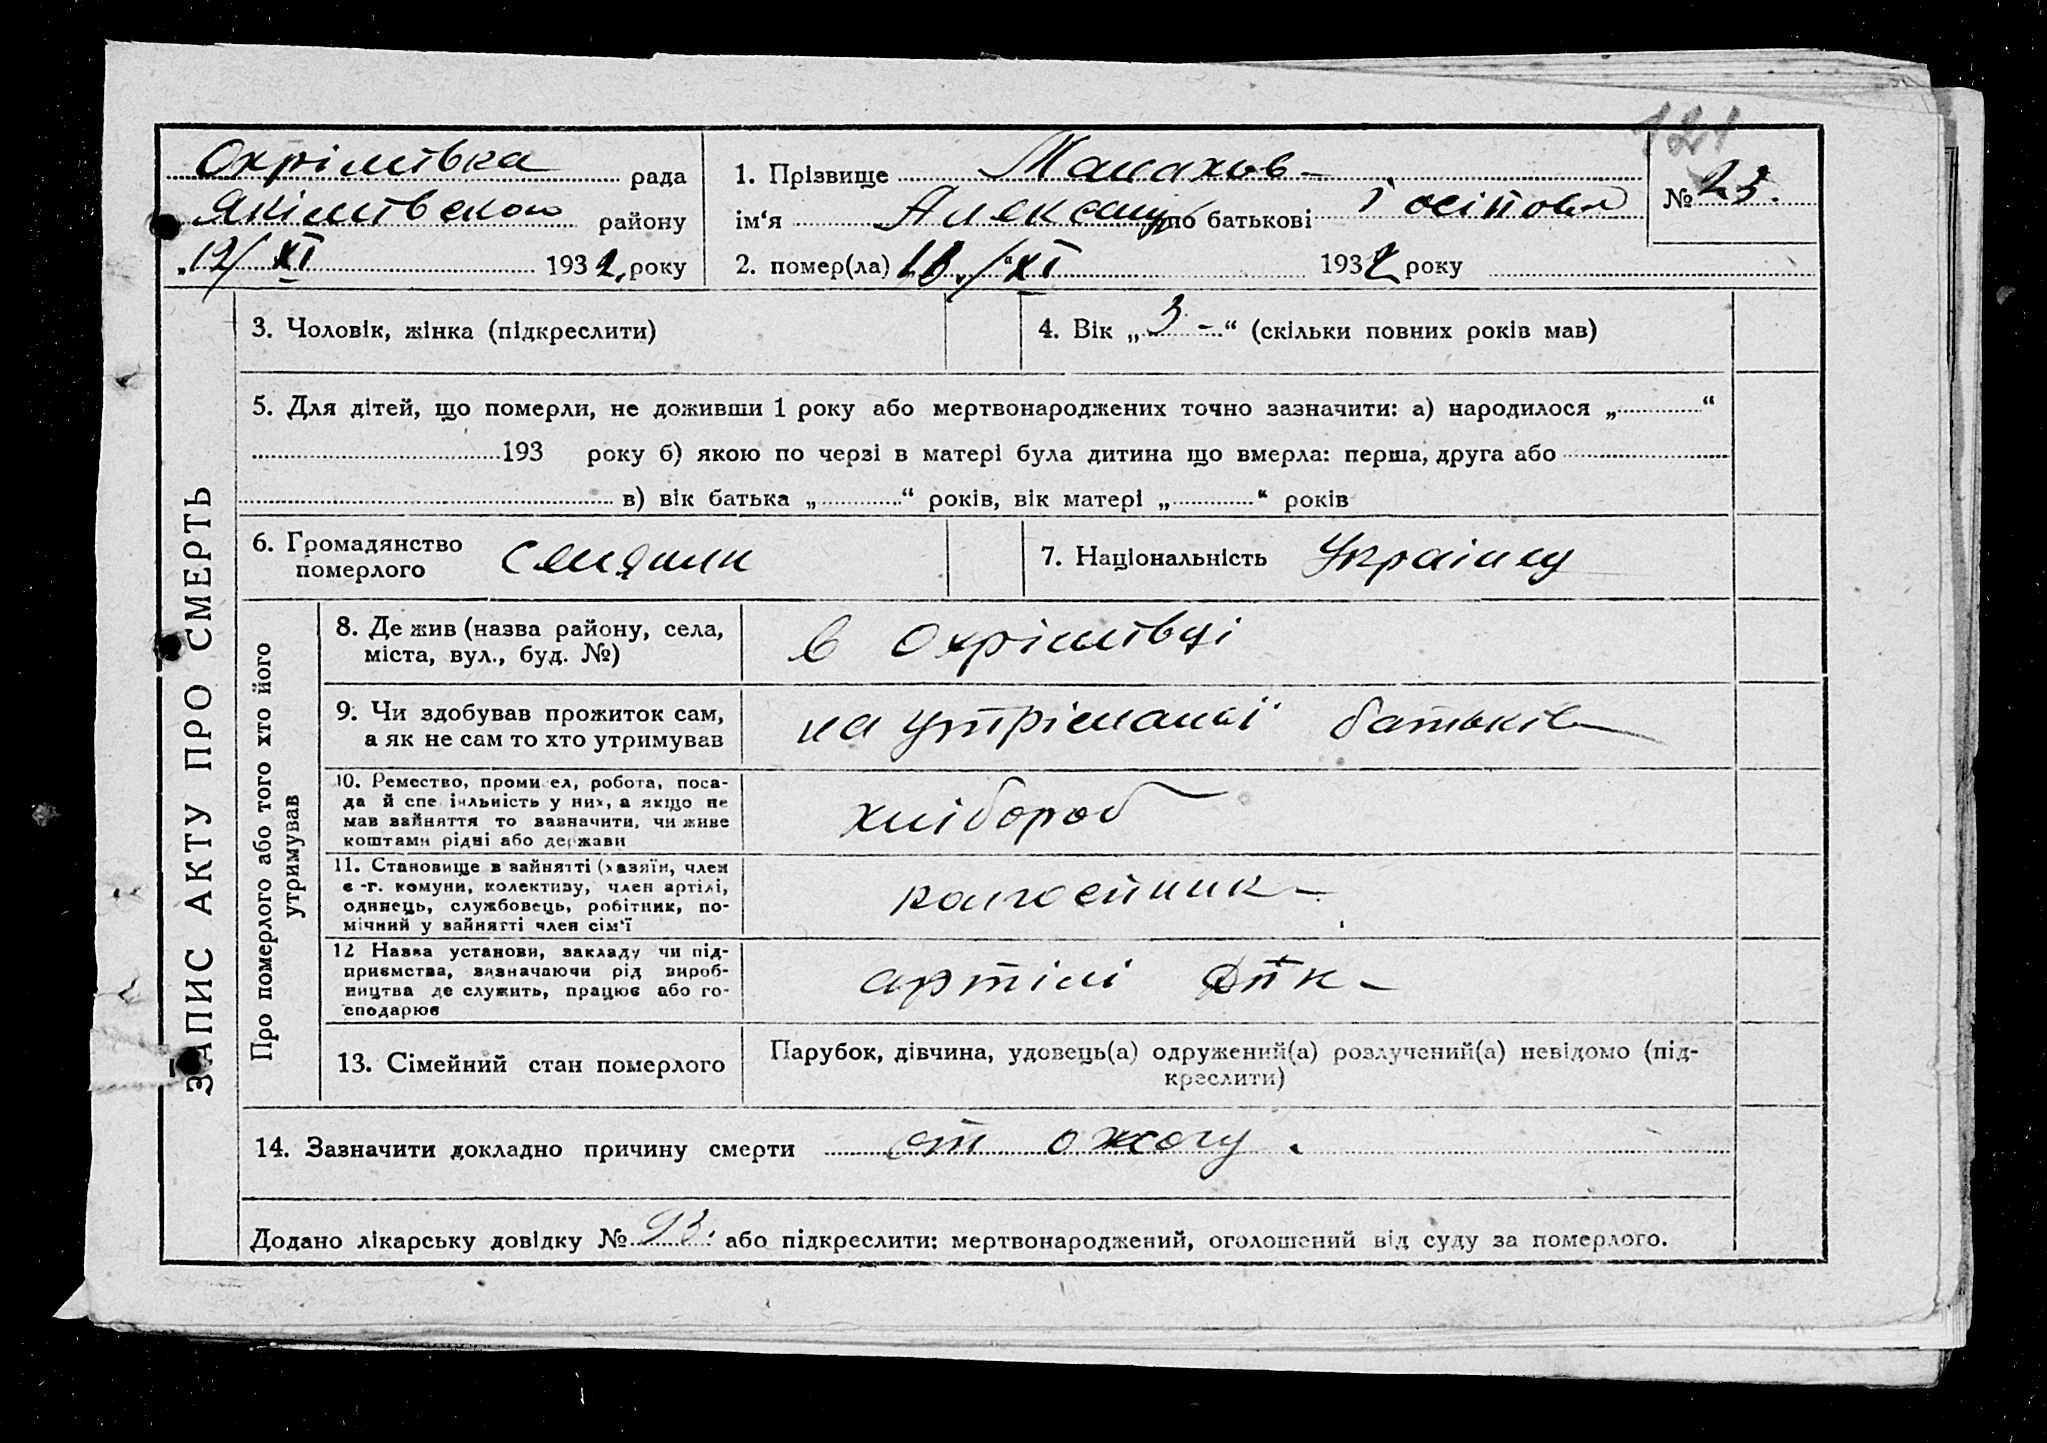 121
Охрімівка рада
Якімівскою району
„12/XI 1932. року
1. Прізвище Манахов
ім‘я Александр по батькові Іосіпов
№ 23.
2. помер(ла) XI 1932 року
ЗАПИС АКТУ ПРО СМЕРТЬ
3. Чоловік, жінка (підкреслити)
4. Вік „ 3 - “ (скільки повних років мав)
5. Для дітей, що померли, не доживши 1 року або мертвонароджених точно зазначити: а) народилося „ “
193 року б) якою по черзі в матері була дитина що вмерла: перша, друга або
в) вік батька „ “ років, вік матері „ “ років
6. Громадянство
померлого
7. Національність Украінец
Про померлого або того хто його
утримував
8. Де жив (назва району, села,
міста, вул., буд. №)
в Охрімівці
9. Чи здобував прожиток сам,
а як не сам то хто утримував
на утріманні батьків
10. Ремество, промисел, робота, поса-
да й спеціяльність у них, а якщо не
мав зайняття то зазначити, чи живе
коштами рідні або держави
хлібороб
11. Становище в зайнятті (хазяїн, член
с.-г. комуни, колективу, член артілі,
одинець, службовець, робітник, по-
мічний у зайнятті член сім‘ї
колгоспник -
12 Назва установи, закладу чи під-
приємства, зазначаючи рід вироб-
ництва де служить, працює або го-
сподарює
артілі
13. Сімейний стан померлого
Парубок, дівчина, удовець(а) одружений(а) розлучений(а) невідомо (під-
креслити)
14. Зазначити докладно причину смерти от ожогу.
Додано лікарську довідку № 93. або підкреслити: мертвонароджений, оголошений від суду за померлого.